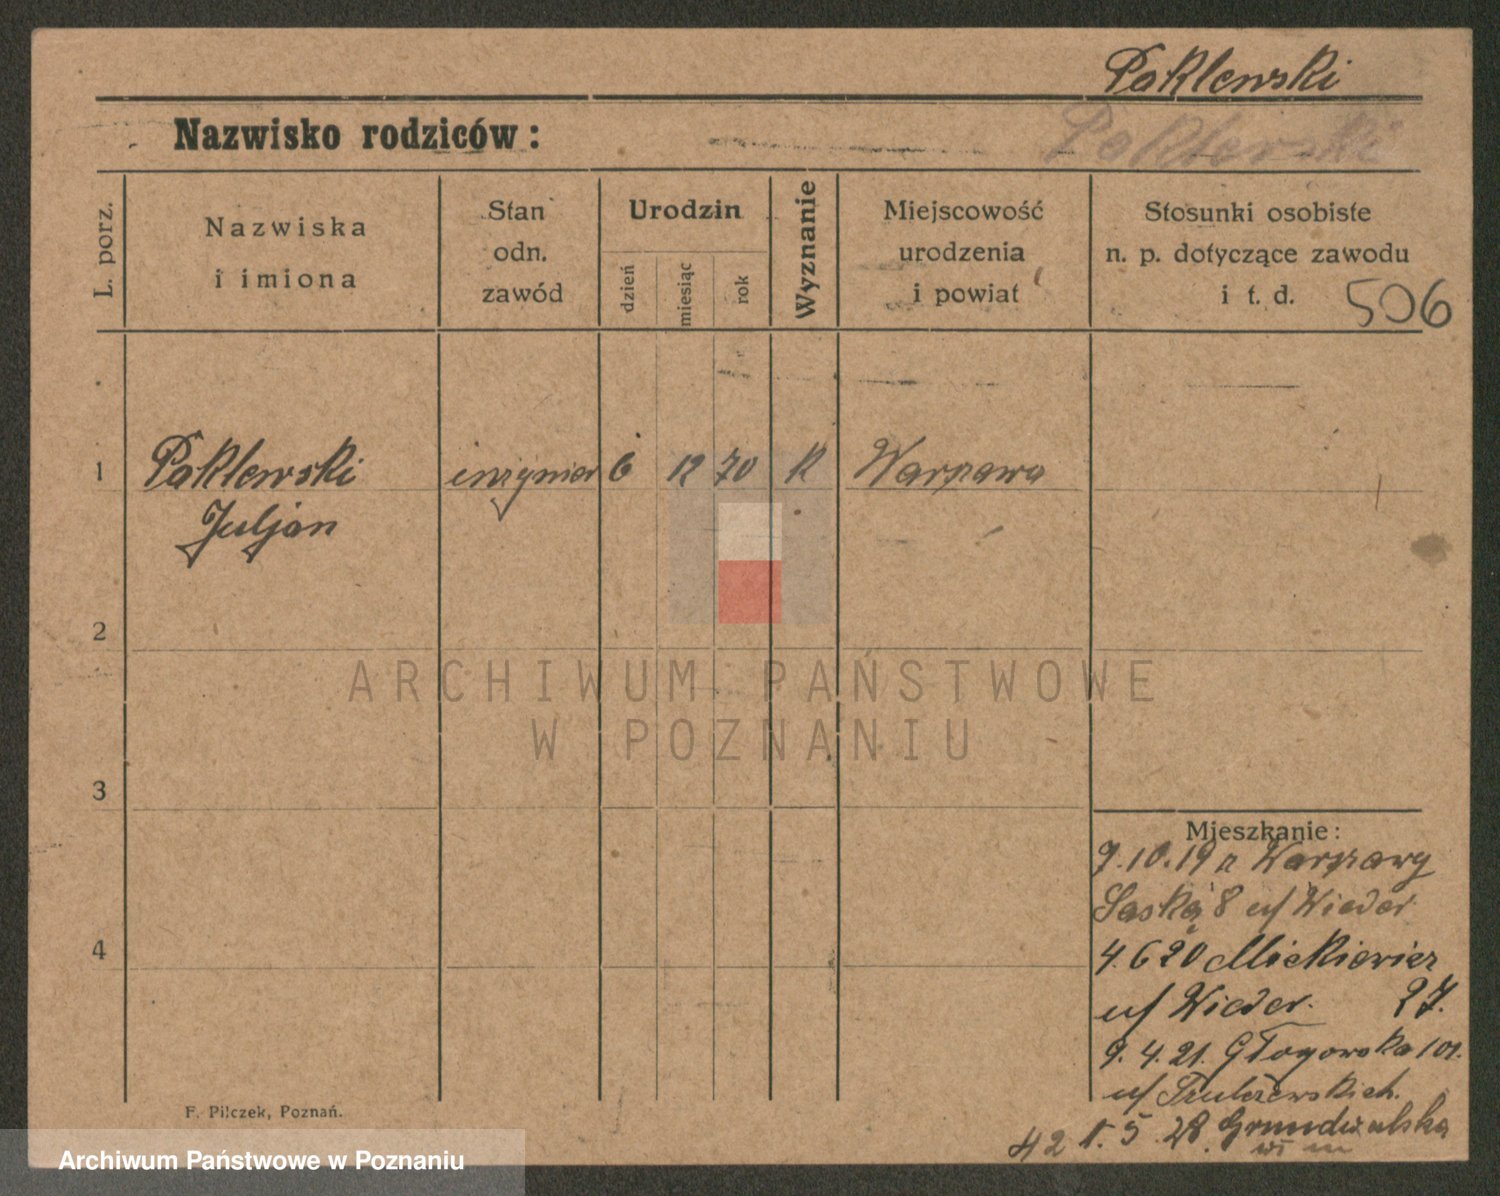 Paklewski
Nazwisko rodziców:
Paklewski
L. porz.
Nazwiska
i imiona
Stan
odn.
zawód
Urodzin
dzień
miesiąc
rok
Wyznanie
Miejscowość
urodzenia
i powiat
Stosunki osobiste
n. p. dotyczące zawodu
i t. d.
506
1 Paklewski inżynier 6 12 70 K Warszawa
Juljan
2
ARCHIWUM PAŃSTWOWE
W POZNANIU
3
Mieszkanie:
7.10.19 z Warszawy
Saska 8 u/ Wieder
4
4.6 20 Mickiewicz
u/ Wieder. 27.
9. 4. 21. Głogowska 101.
u/
F. Pilczek, Poznań.
1. 5. 28. Grundwalska
42
Archiwum Państwowe w Poznaniu